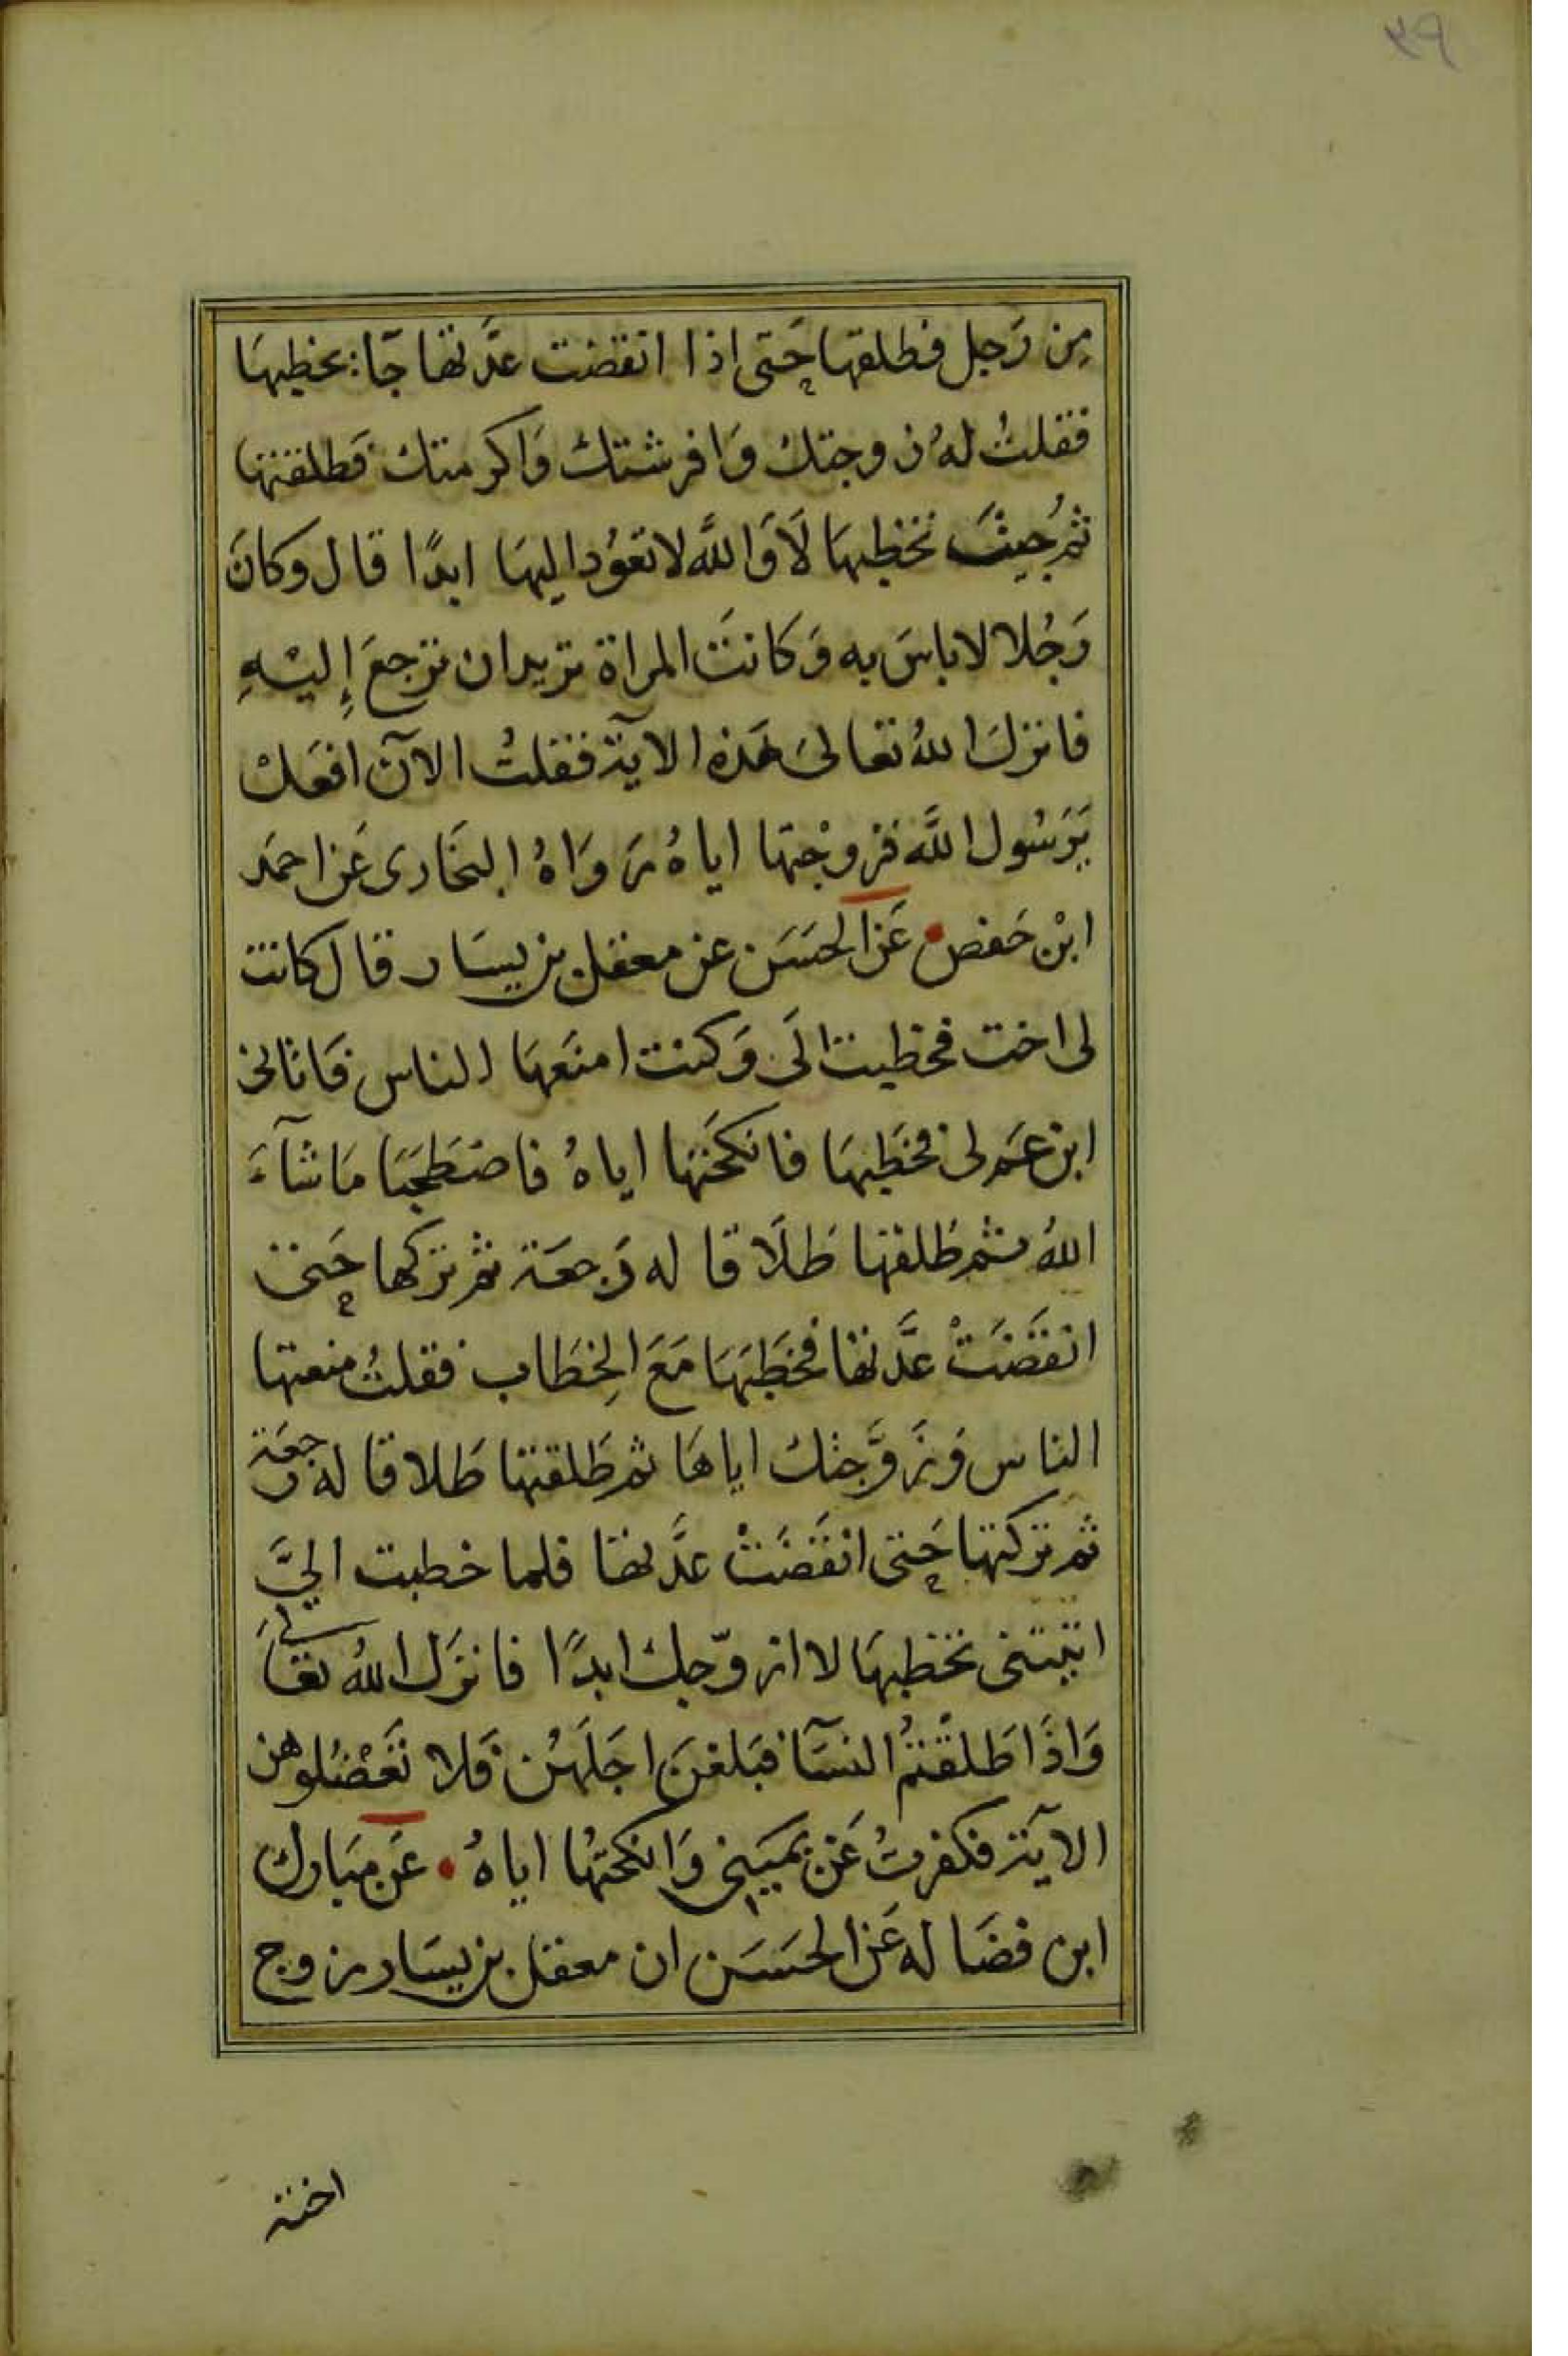 مِن رَجل فطلقها حَتى اذا انقضت عدَّتها جَآء يخطبهَا
فقلتُ لهُ زوجتك وَافرشتك وَاكرمتك فطلقتها
ثمُ جيْتَ تخطبهَا لَا وَاللَّه لا تعوُد اليهَا ابدًا قال وكانَ
رَجُلا لا باسَ به وَكانَت المراة تريد ان ترجعَ إليْهِ
فانزلَ اللهُ تعالىَ هَذه الآية فقلتُ الآن افعَل
يَرَسُول اللَّه فزوجْتها اياهُ رَوَاهُ البخَارى عَن احمَد
ابْن حَفص عَن الحسَن عن معقل بن يسَار قال كانت
لى اخت فخطبت الَى وَكنت امنَعهَا الناس فَاتانى
ابن عَم لى فخَطبهَا فانكحَتها اياهُ فاصْطحَبَا مَا شآءَ
اللهُ ثم طَلقها طَلَاقا له رَجعَة ثم تركها حَتى
انقَضَتْ عدَّتها فخطَبَهَا مَعَ الخِطَاب فقلتُ منعتها
الناس وَزَوَّجتك اياهَا ثم طَلقتها طَلاقا له رجعَة
ثم تركتها حَتى انقَضَتْ عدَّتها فلما خطبت اليَّ
اتيتنى تخطبهَا لا ازوّجك ابدًا فانزَل اللهُ تعَالى
وَاذَا طَلقْتمُ النسَآ فبَلغنَ اجَلَهُن فَلا تَعْضلُوهن
الآية فكفرتُ عَن يمَينى وَانكحَتهُا اياهُ عَن مبَارك
ابن فضَاله عَن الحسَن ان معقل بن يسَار زوج
اخته